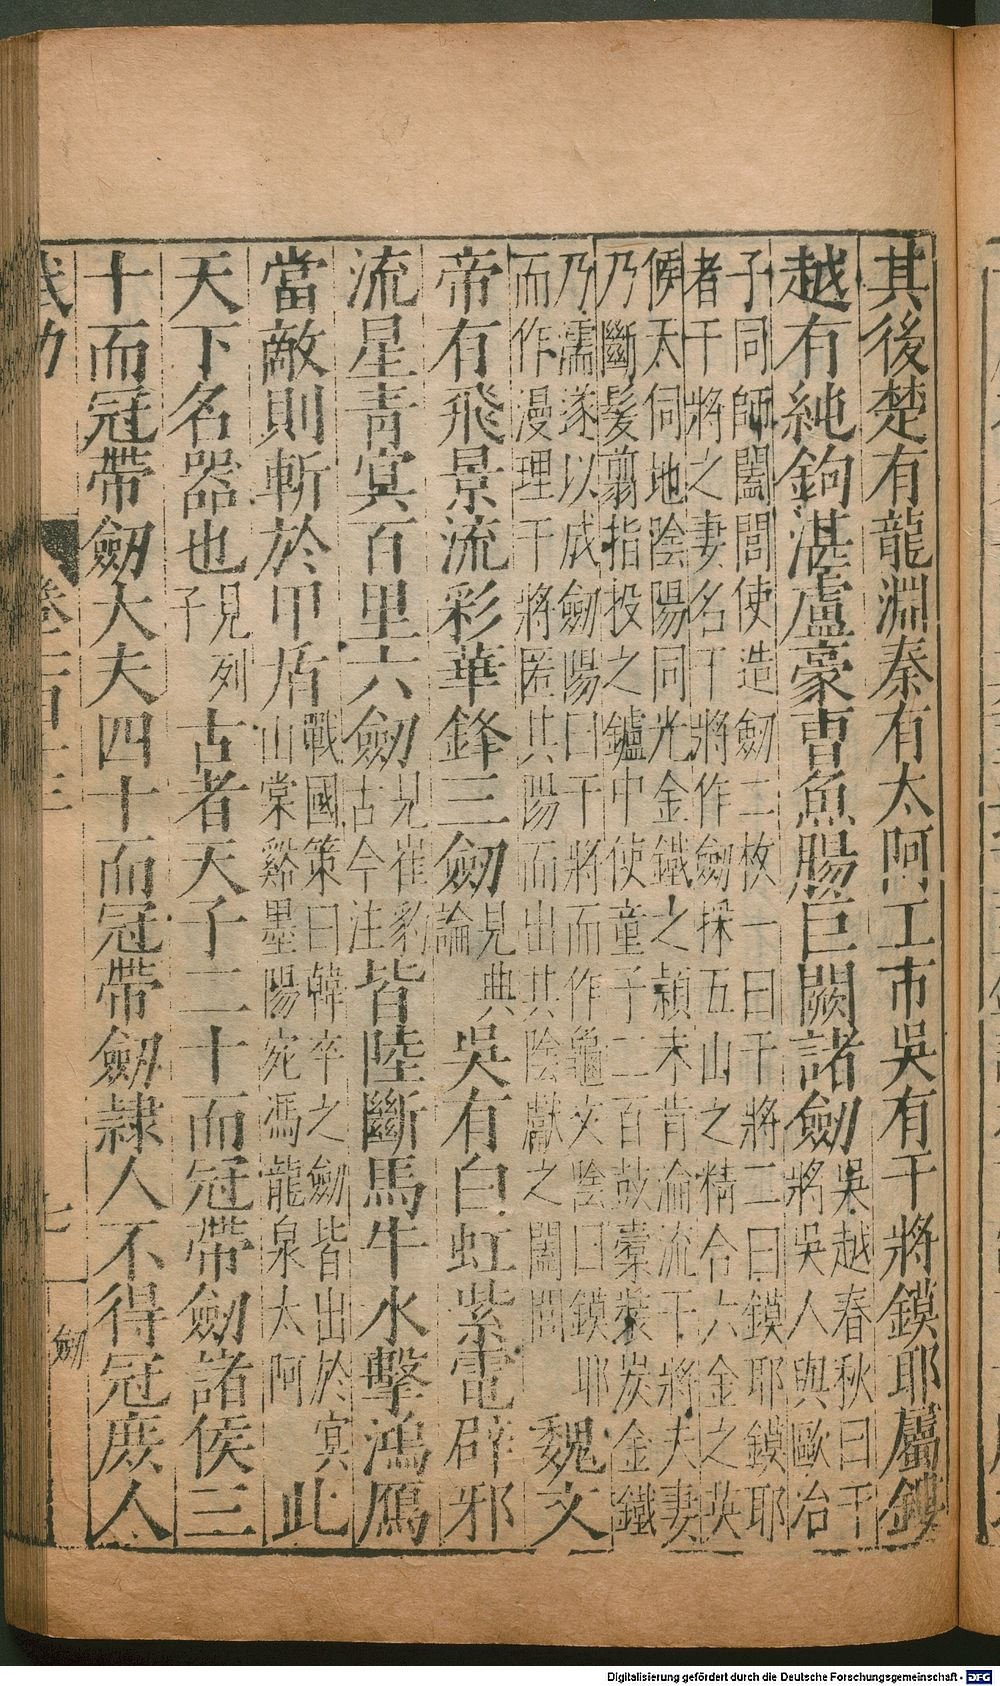 其後楚有龍淵秦有太阿工市吳有干將鏌耶屬鏤
越有純鉤湛盧豪曹魚腸巨闕諸劍
吳越春秋曰干
將吳人與歐冶
子同師闔閭使造劒二枚一曰干將二曰鏌耶鏌耶
者干將之妻名干將作劍採五山之精合六金之英
候太伺地陰陽同光金鐵之潁未肯淪流干將夫妻
乃斷髮翦指投之鑪中使童子二百鼓橐裝炭金鐵
乃濡遂以成劒陽曰干將而作龜文陰曰鏌耶
而作漫理干將匿其陽而出其陰獻之闔閭
魏文
帝有飛景流彩華鋒三劒
見典
論
吳有白虹紫電辟邪
流星青冥百里六劒
見崔豹
古今注
皆陸斷馬牛水擊鴻鴈
當敵則斬於甲盾
戰國策曰韓卒之劒皆出於冥
山棠谿墨陽宛馮龍泉太阿
此
天下名器也
見列
子
古者天子二十而冠帶劒諸侯三
十而冠帶劒大夫四十而冠帶劒隸人不得冠庶人
武功
七
劒
Digitalisierung gefördert durch die Deutsche Forschungsgemeinschaft - DFG